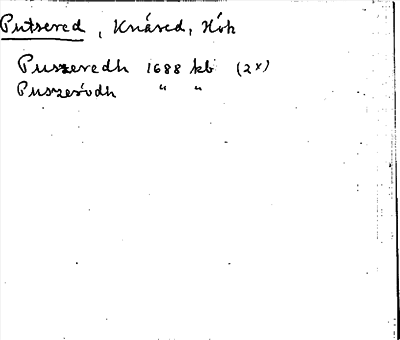 Putsered, Knäred, Höh
Puszeredh 1688 kb (2x)
Puszerödh " "